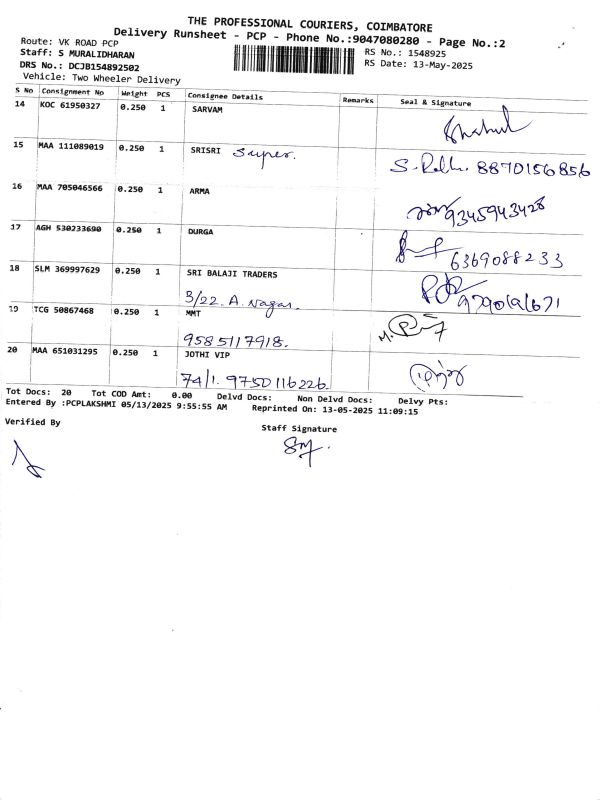 THE PROFESSIONAL COURIERS, COIMBATORE
Delivery Runsheet - PCP - Phone No.:9047080280 - Page No.:2
Route: VK ROAD PCP
Staff: S MURALIDHARAN
DRS No.: DCJB154892502
Vehicle: Two Wheeler Delivery
RS No.: 1548925
RS Date: 13-May-2025
S No Consignment No Weight PCS Consignee Details Remarks Seal & Signature
14 KOC 61950327 0.250 1 SARVAM
15 MAA 111089019 0.250 1 SRISRI Super. 8870156856
16 MAA 705046566 0.250 1 ARMA 9345943428
17 AGH 530233690 0.250 1 DURGA 6369088233
18 SLM 369997629 0.250 1 SRI BALAJI TRADERS
3/22. A. Nagar.
19 TCG 50867468 0.250 1 MMT
9585117918.
20 MAA 651031295 0.250 1 JOTHI VIP
74/1. 9750116226.
Tot Docs: 20 Tot COD Amt: 0.00 Delvd Docs: Non Delvd Docs: Delvy Pts:
Entered By :PCPLAKSHMI 05/13/2025 9:55:55 AM Reprinted On: 13-05-2025 11:09:15
Verified By
Staff Signature